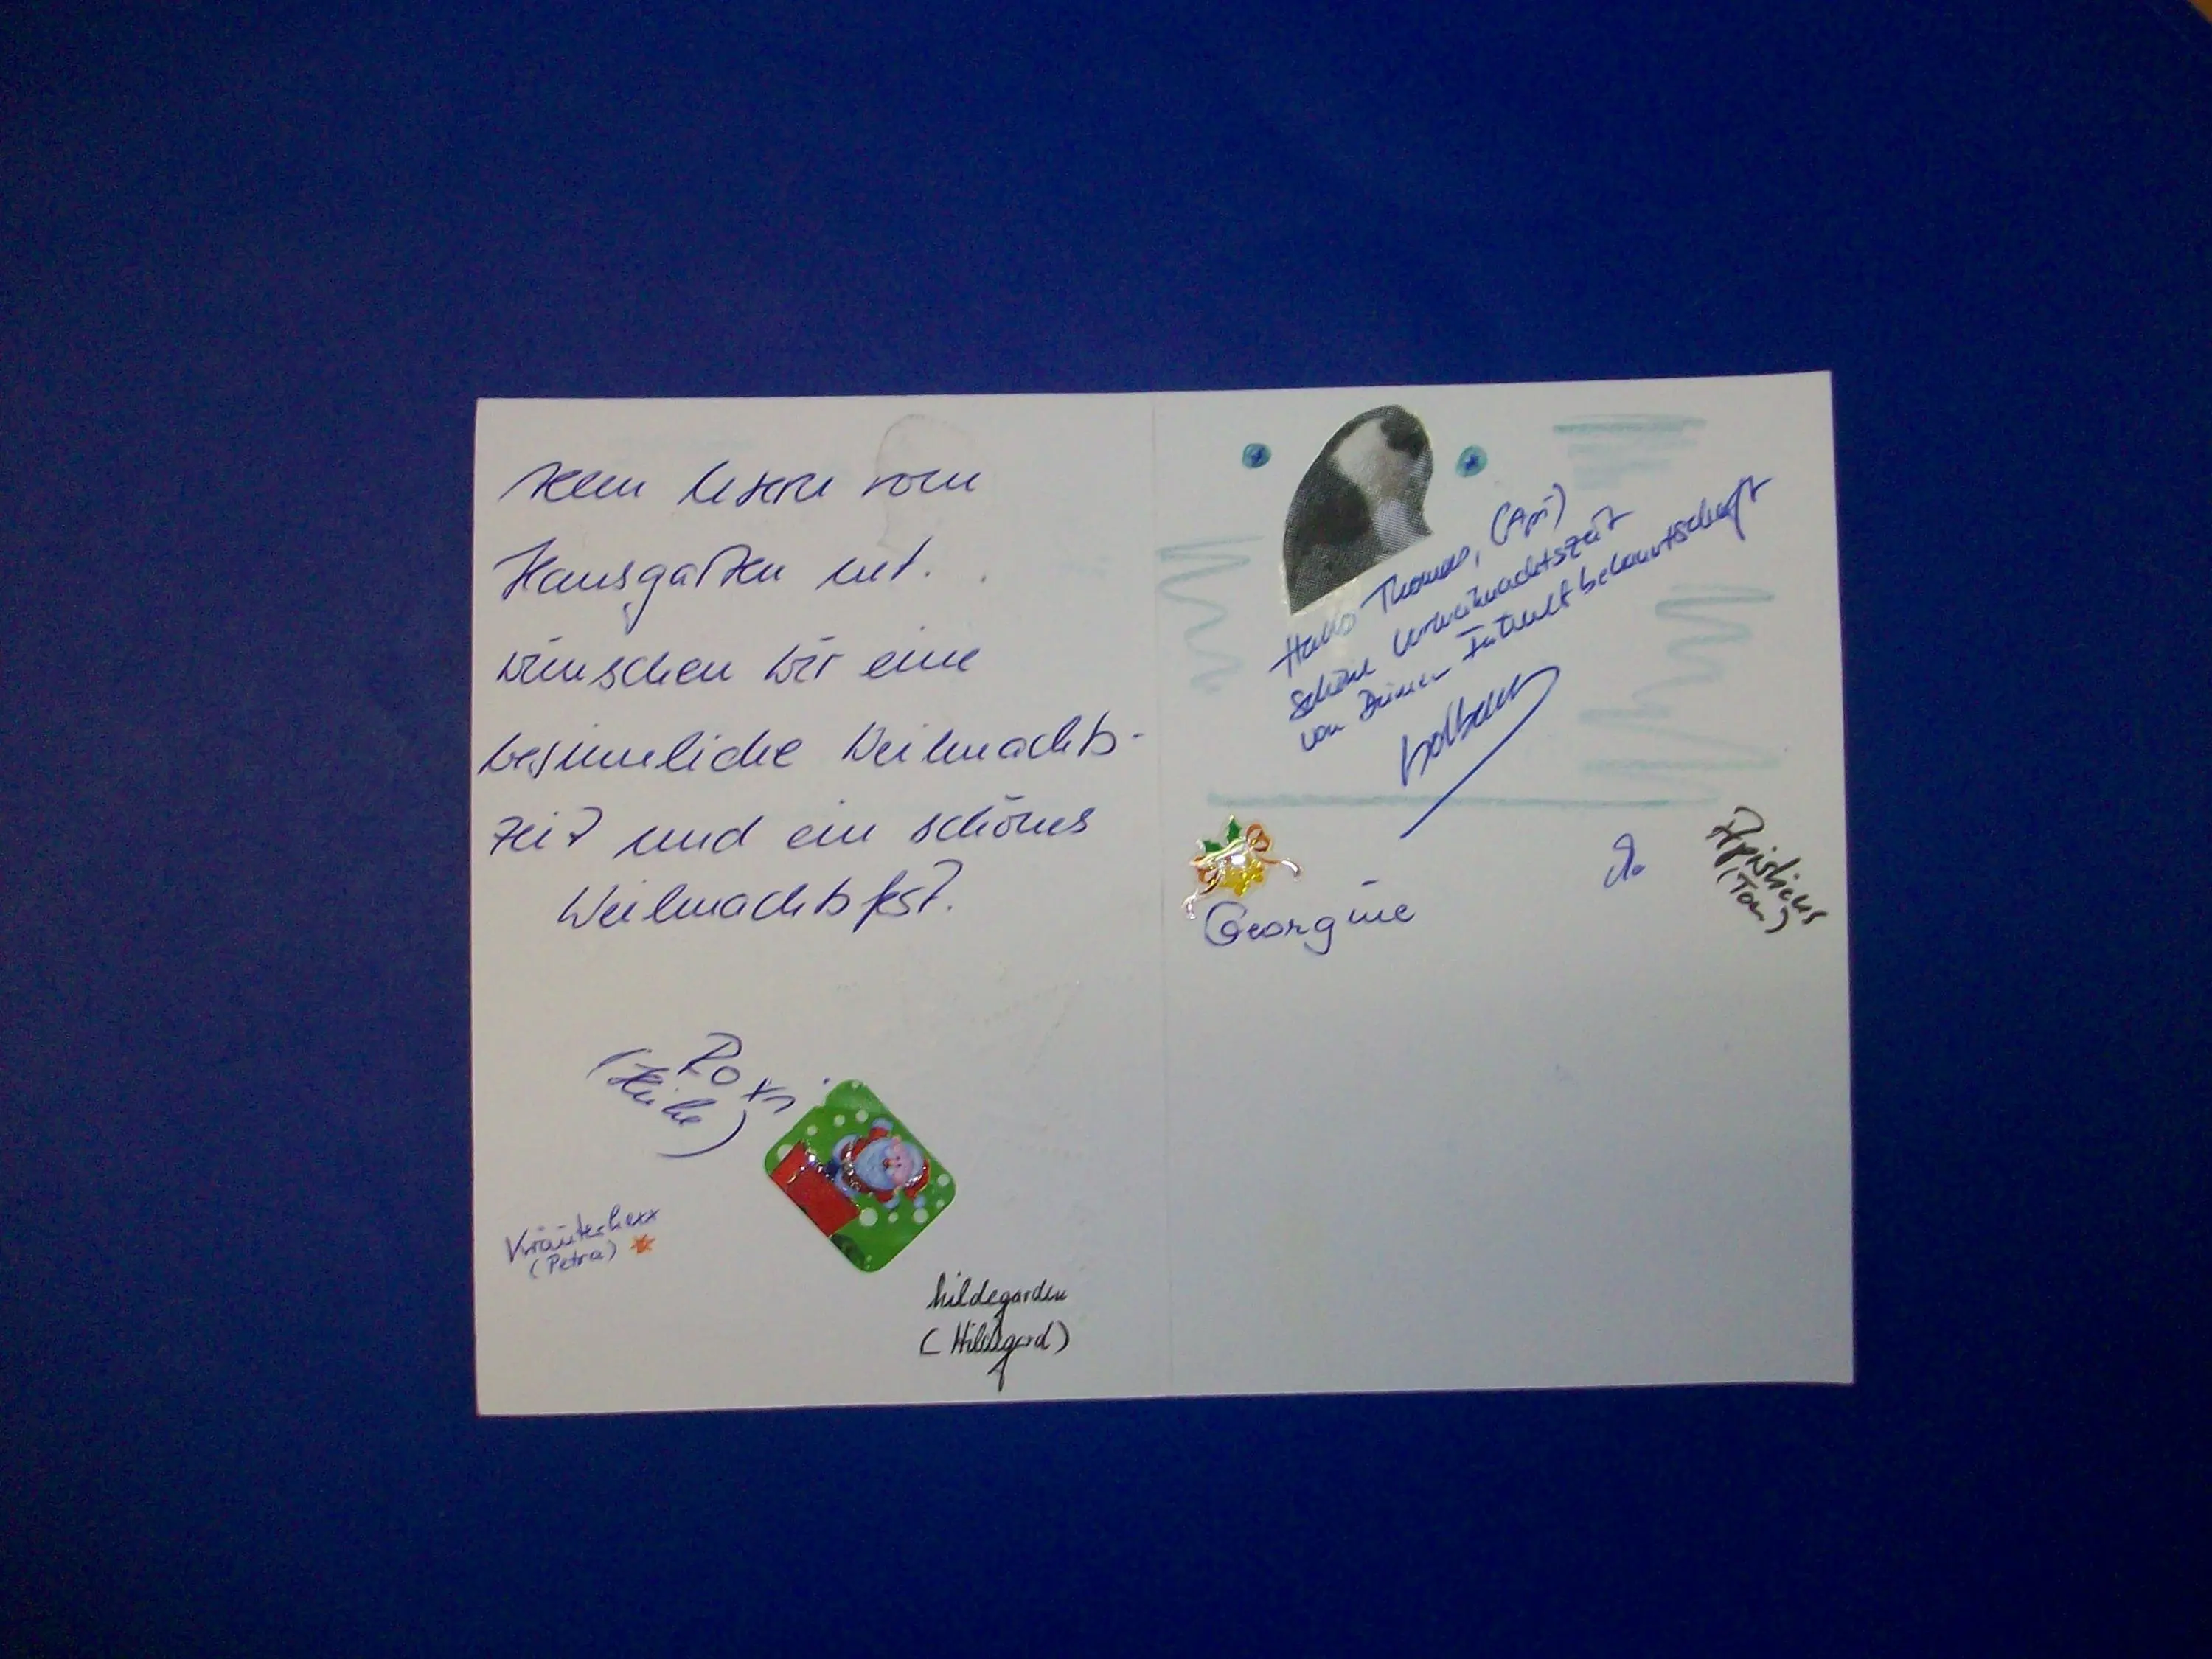 Hausgarten net.
wünschen wir eine
besinnliche Weihnachts-
zeit und ein schönes
Weihnachtsfest.
Roxi
(Heike)
Kräuterhexe
(Petra)
hildegarden
(Hildegard)
Hallo Thomas, (Api)
schöne Vorweihnachtszeit
von Deiner Intent bekanntschaft
Georgine
Apisticus
(Tom)